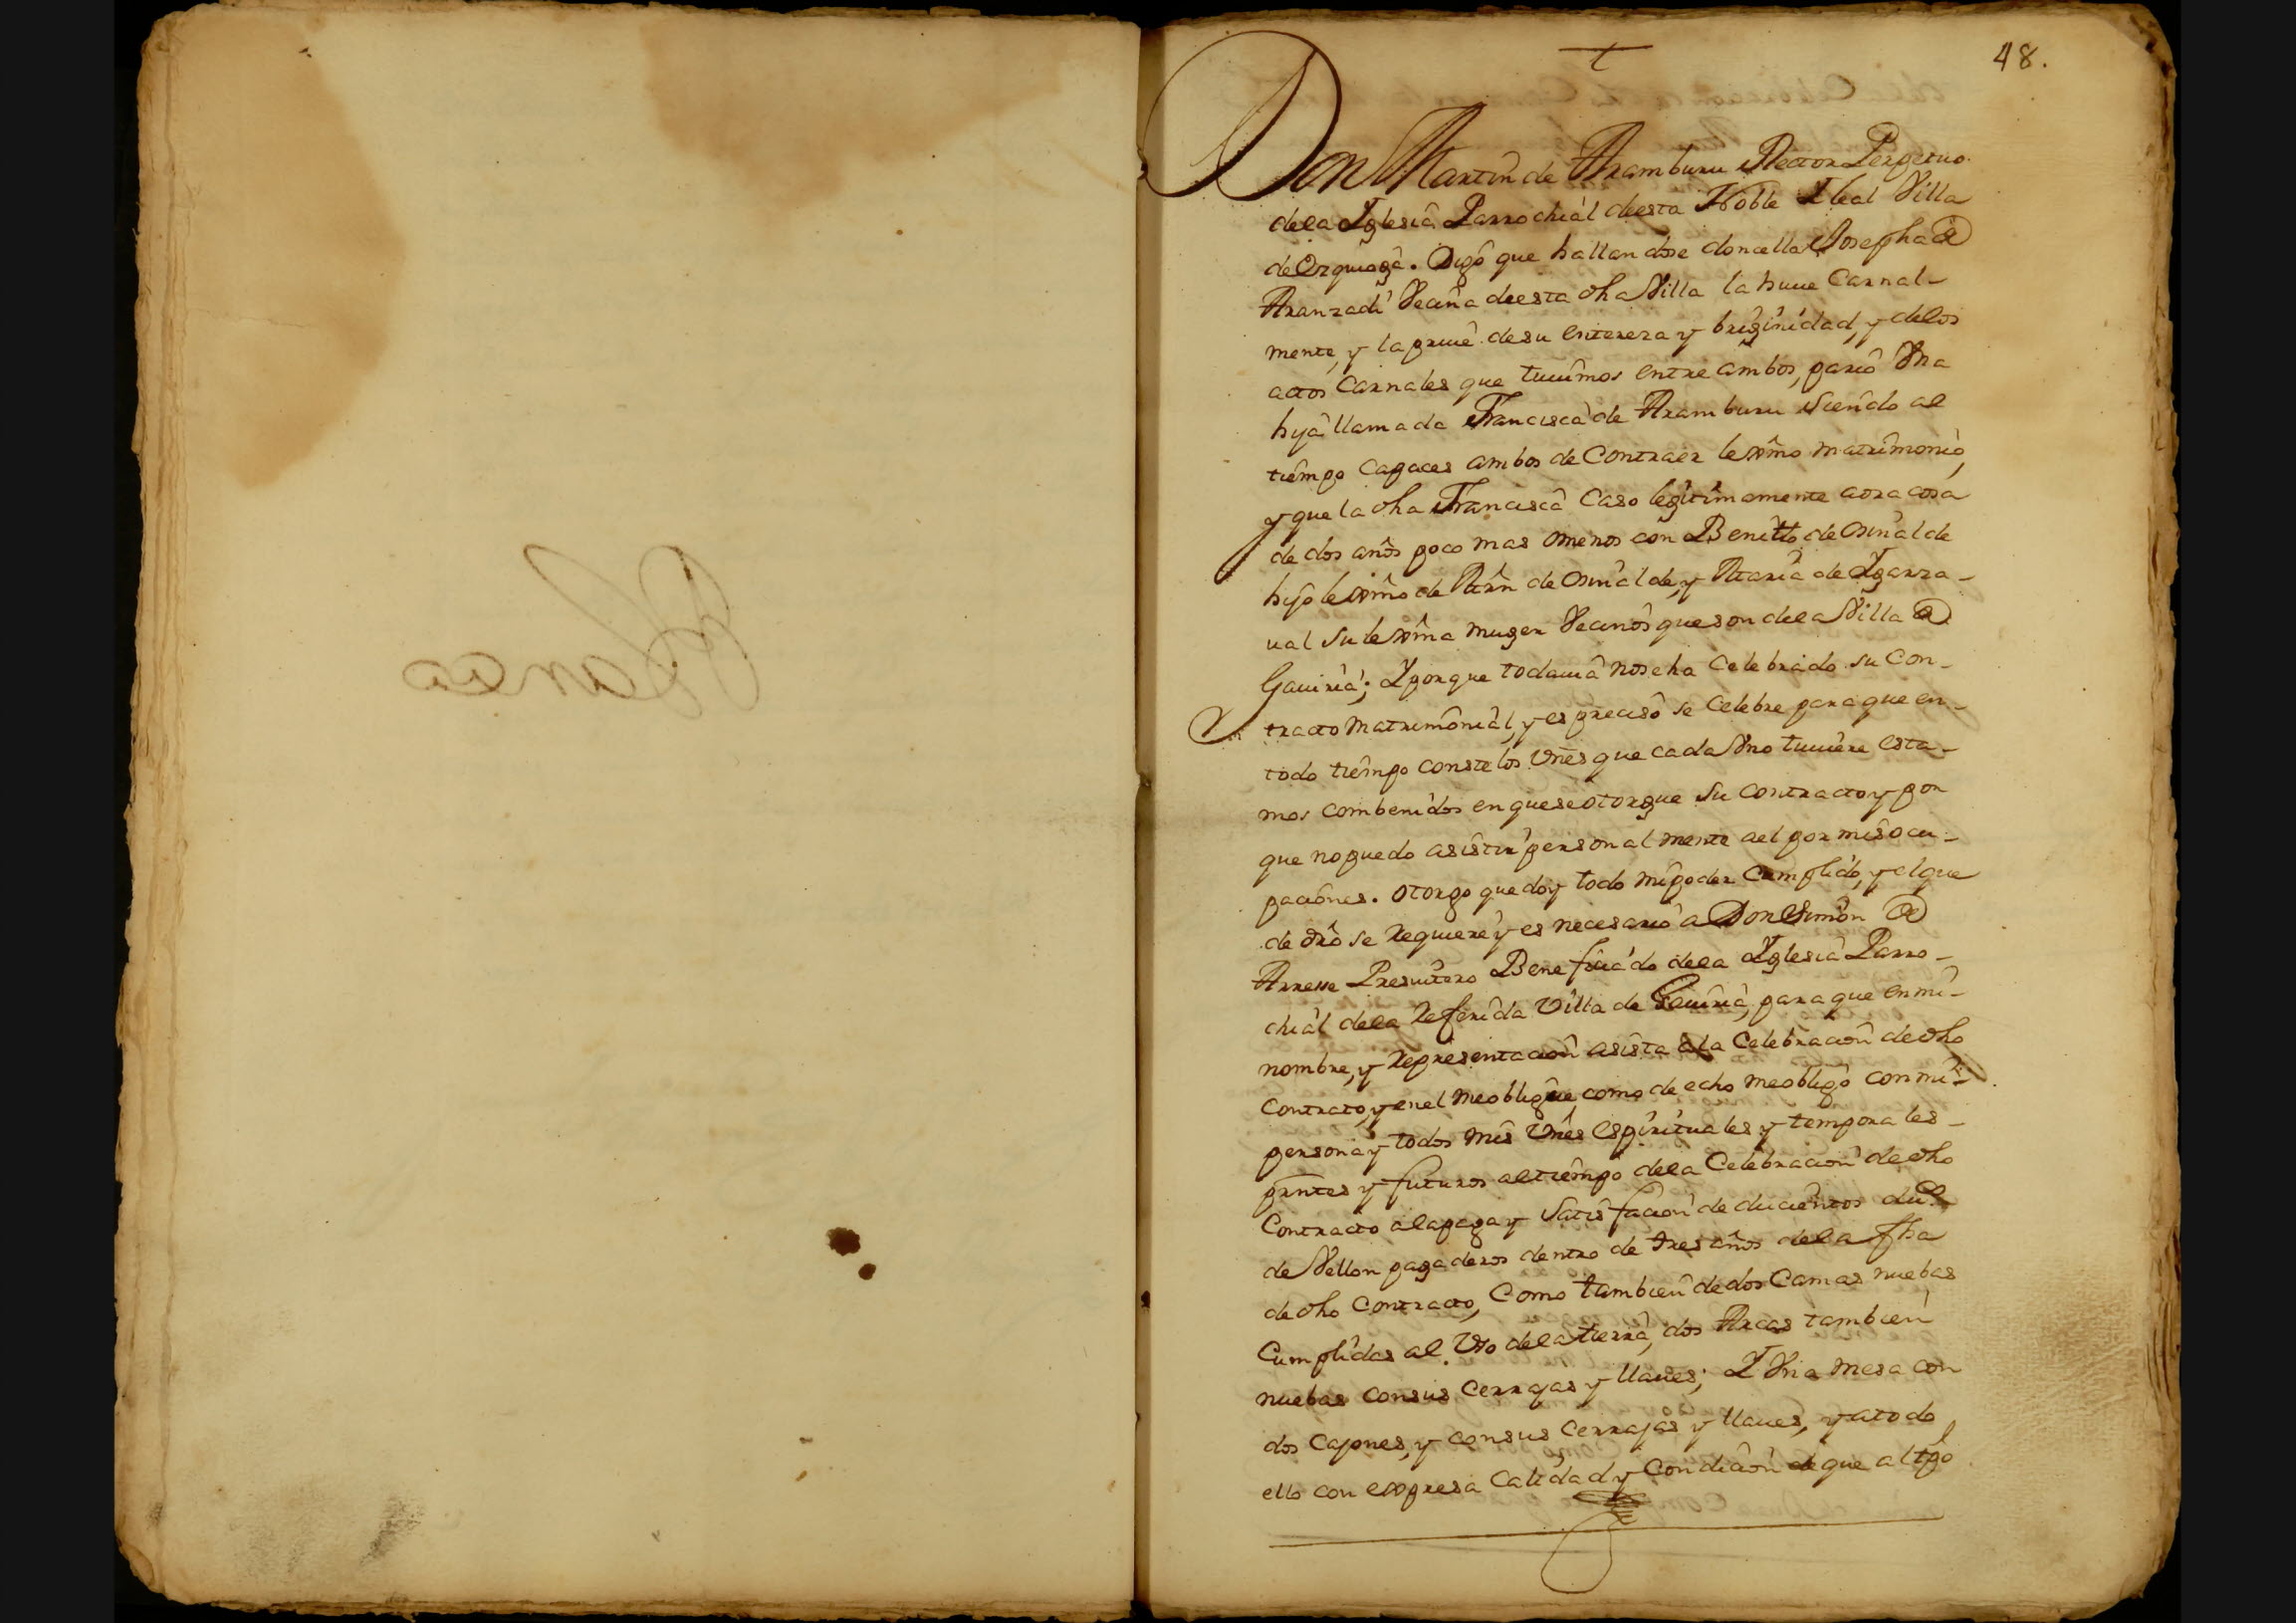 Blanco
48.
Don Martin de Aramburu Rector Perpetuo
dela Iglesia Parrochial deesta Noble Y leal Villa
de Ezquioga. Digo que hallandose doncella Josepha de
Aranzadi Vecina deesta dha Villa la huue Carnal-
mente, y la priue desu entereza y birginidad, y delos
actos Carnales que tuuimos entre ambos, pario Vna
hija llamada Francisca de Aramburu siendo al
tiempo Capaces ambos de Contraer lexmo matrimonio,
y que la dha Francisca Caso legitimamente aora cosa
de dos años poco mas omenos con Benitto de Osinalde
hijo lexmo de Mrn de Osinalde, y Maria de Igarza-
ual su lexma muger Vecinos queson dela Villa de
Gauiria; Y porque todauia noseha Celebrado su Con-
tracto Matrimonial, y es preciso se Celebre paraque en-
todo tiempo conste los Vnes que cada Vno tuuiere esta-
mos combenidos en queseotorgue su contracto y por
que no puedo asistir personalmente ael por mis ocu-
paciones. Otorgo que doy todo mi poder Cumplido, y elque
de dro se requiere y es necesario a Don Simon de
Arrese Presuitero Beneficiado dela Iglesia Parro-
chial dela Referida Villa de Gauiria, para que en mi-
nombre, y Representacion asista ala Celebracion de dho
Contracto, y enel meobligue, como de echo meobligo con mi-
persona y todos mis Vnes espirituales y temporales-
prntes y futuros altiempo dela Celebracion de dho
Contracto alapaga y satisfacion de ducientos ducs
de Vellon pagaderos dentro de tres años dela fha
de dho Contracto, Como tambien dedos Camas nuebas
Cumplidas al Vso delatierra, dos Arcas tambien
nuebas consus Cerrajas y llaues; Y Vna mesa con
dos Cajones, y consus cerrajas y llaues, y atodo
ello con expresa Calidad y Condicion de que al tpo